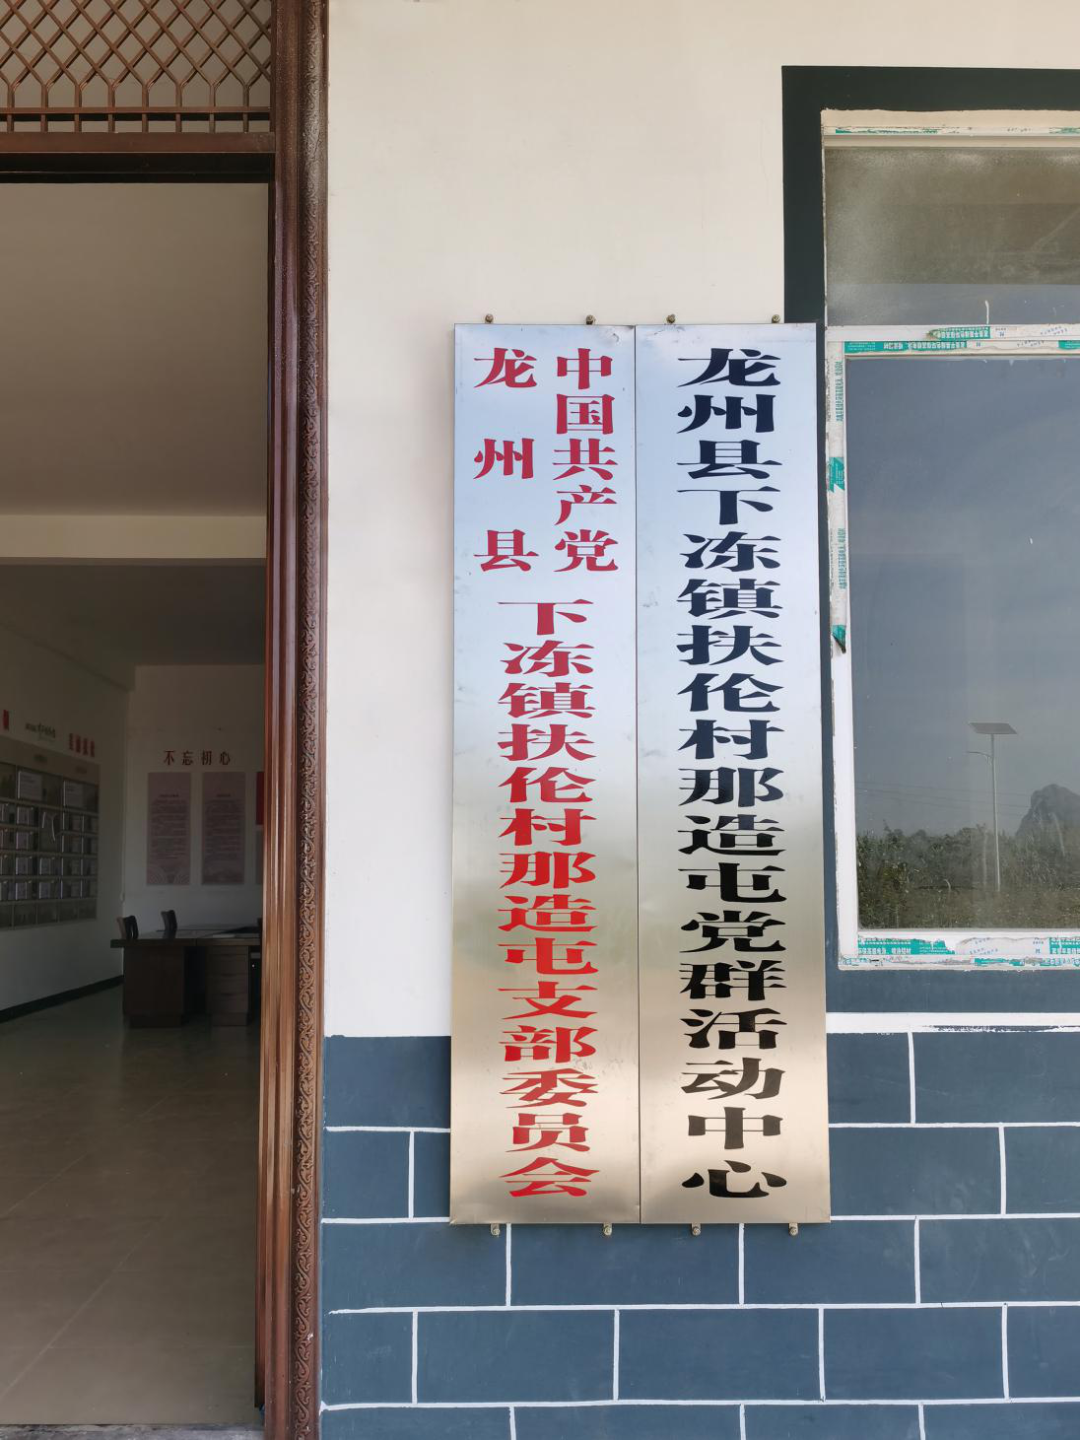 中国共产党
龙州县
下冻镇扶伦村那造屯支部委员会
龙州县下冻镇扶伦村那造屯党群活动中心
不忘初心